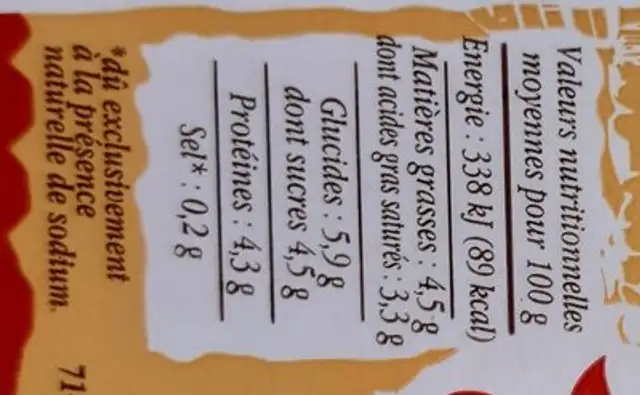 Valeurs nutritionnelles
moyennes pour 100 g
Energie : 338 kJ (89 kcal)
Matières grasses : 4,5 g
dont acides gras saturés : 3,3 g
Glucides : 5,9 g
dont sucres 4,5 g
Protéines : 4,3 g
Sel* : 0,2 g
*dû exclusivement
à la présence
naturelle de sodium.